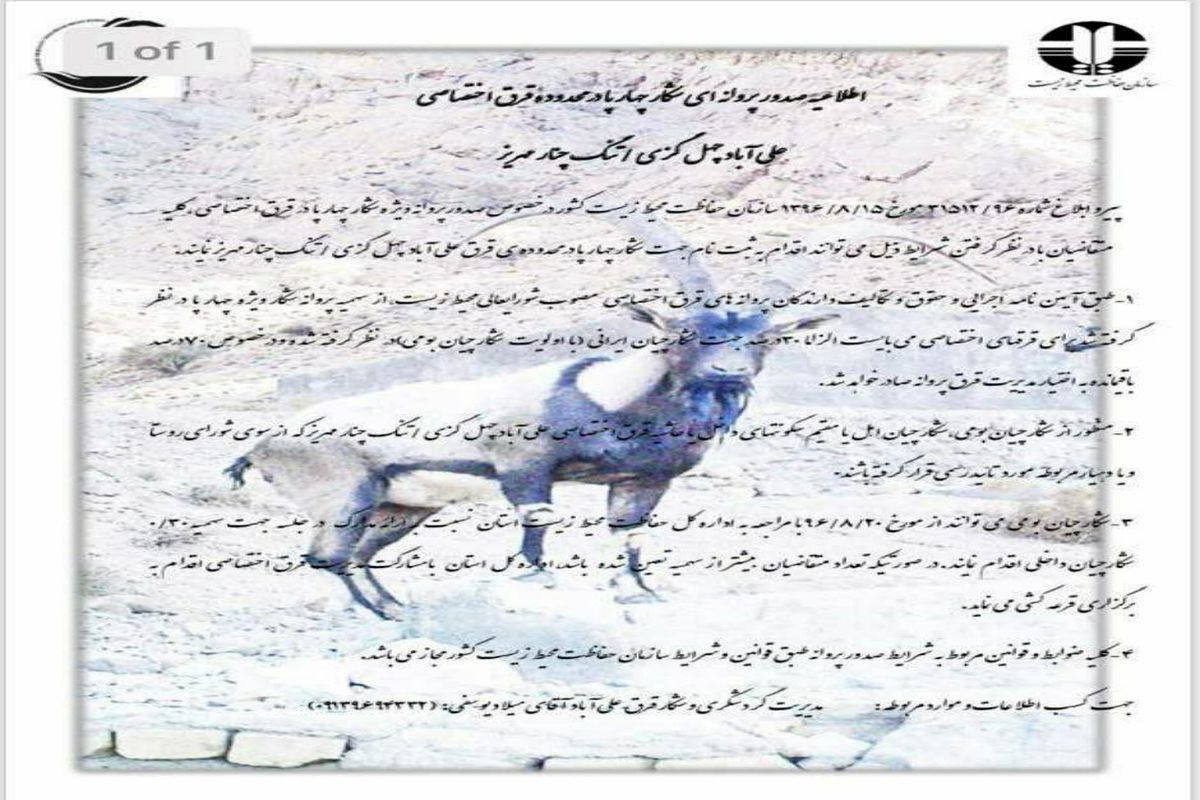 1 of 1
سازمان حفاظت محیط زیست
اطلاعیه صدور پروانه ای شکار چهارپا در محدوده قرق اختصاصی
علی آباد چهل گزی / تنگ چنار مهریز
پیرو ابلاغ شماره ۳۱۵۱۳/۹۶ مورخ ۱۳۹۶/۸/۱۵ سازمان حفاظت محیط زیست کشور در خصوص صدور پروانه ویژه شکار چهارپا در قرق اختصاصی، کلیه
متقاضیان با در نظر گرفتن شرایط ذیل می توانند اقدام به ثبت نام جهت شکار چهارپا در محدوده ی قرق علی آباد چهل گزی / تنگ چنار مهریز نمایند:
۱- طبق آیین نامه اجرایی و حقوق و تکالیف دارندگان پروانه های قرق اختصاصی مصوب شورایعالی محیط زیست، از سهمیه پروانه شکار ویژه چهارپا در نظر
گرفته شده برای قرقهای اختصاصی می بایست الزاما ۳۰ درصد جهت شکارچیان ایرانی (با اولویت شکارچیان بومی) در نظر گرفته شده و در خصوص ۷۰ درصد
باقیمانده به اختیار مدیریت قرق پروانه صادر خواهد شد.
۲- منظور از شکارچیان بومی، شکارچیان اهل یا مقیم سکونتهای داخل یا حاشیه قرق اختصاصی علی آباد چهل گزی / تنگ چنار مهریز که از سوی شورای روستا
و یا دهیار مربوطه مورد تایید رسمی قرار گرفته باشند.
۳- شکارچیان بومی می توانند از مورخ ۹۶/۸/۲۰ با مراجعه به اداره کل حفاظت محیط زیست استان نسبت به ارائه مدارک در جلسه جهت سهمیه ۳۰٪
شکارچیان داخلی اقدام نمایند. در صورتیکه تعداد متقاضیان بیشتر از سهمیه تعیین شده باشد، اداره کل استان با مشارکت مدیریت قرق اختصاصی اقدام به
برگزاری قرعه کشی می نماید.
۴- کلیه ضوابط و قوانین مربوط به شرایط صدور پروانه طبق قوانین و شرایط سازمان حفاظت محیط زیست کشور مجاز می باشد.
جهت کسب اطلاعات و موارد مربوطه: مدیریت گردشگری و شکار قرق علی آباد آقای میلاد یوسفی: (۰۹۱۳۹۶۹۴۳۳۲)